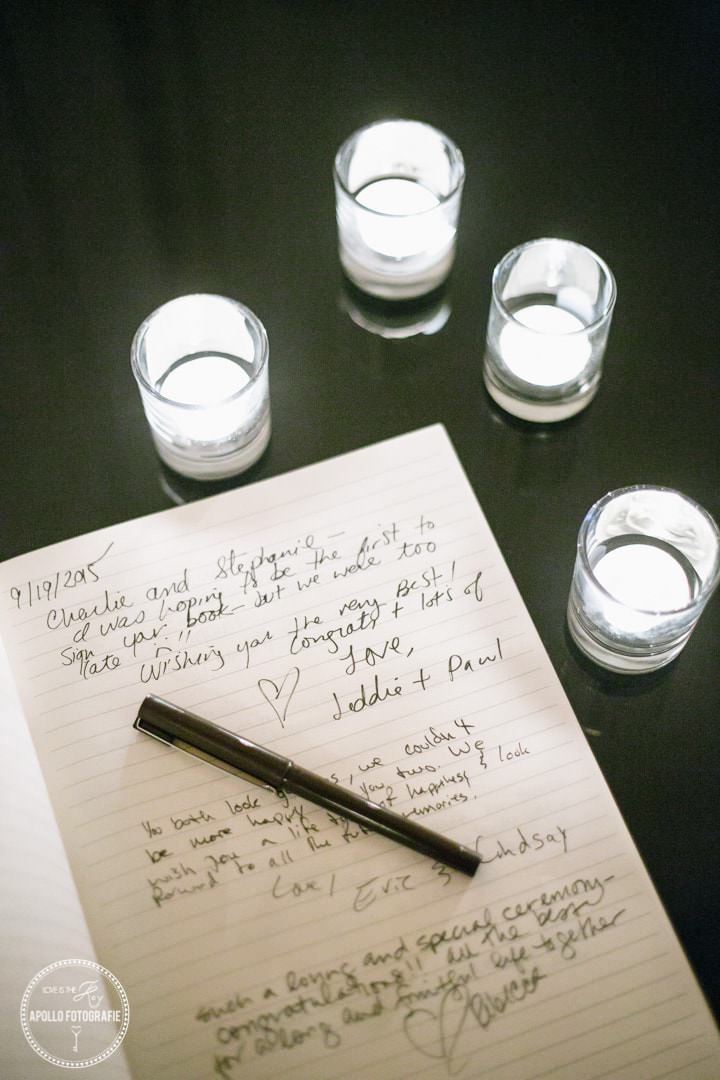 9/19/2015
Charlie and Stephanie –
I was hoping to be the first to
sign your book – but we were too
late!!
Wishing you the very Best!
Congrats + lots of
Love,
Leddie + Paul
You both look, we couldn't
be more happy you two. We
wish you a life of happiness & look
forward to all the memories.
Love, Eric & Lindsay
Such a loving and special ceremony –
congratulations!! All the best
for a long and fruitful life together
LOVE IS THE Key
APOLLO FOTOGRAFIE